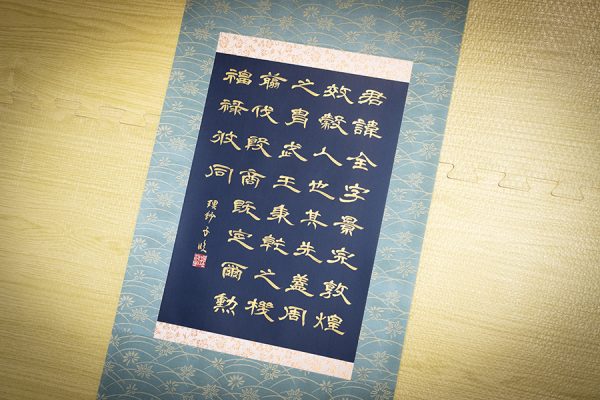 君諱全字景完敦煌
效穀人也其先蓋周
之胄武王秉乾之機
翦伐殷商既定爾勳
福祿攸同